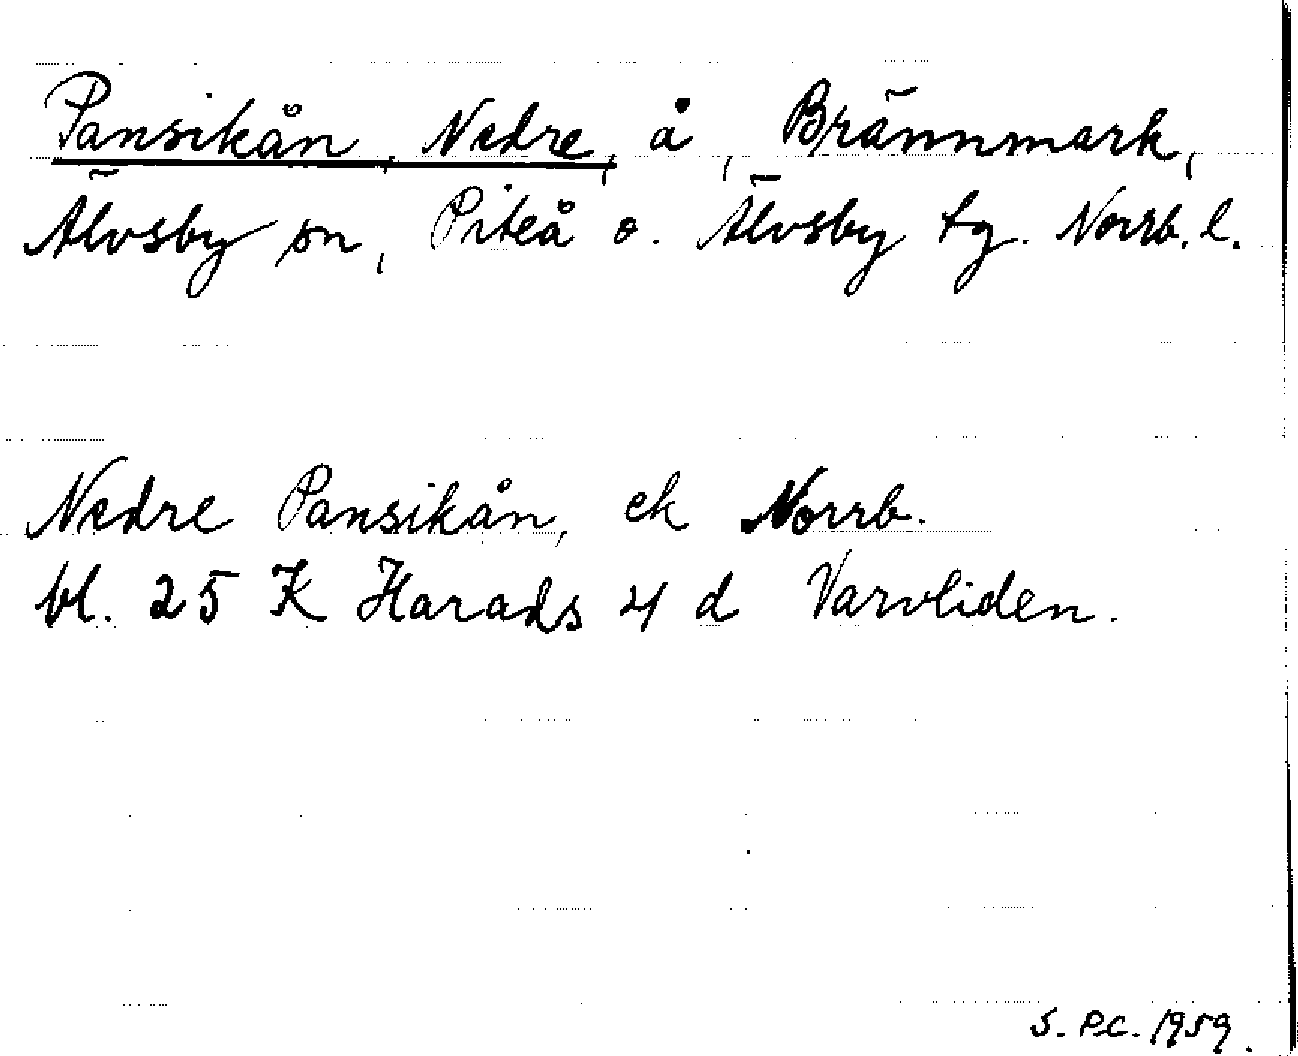 Pansikån, Nedre, å, Brännmark,
Älvsby sn, Piteå o. Älvsby tg. Norrb. l.
Nedre Pansikån, ek Norrb.
bl. 25 K Harads 4 d Varvliden.
S. P.C. 1959.